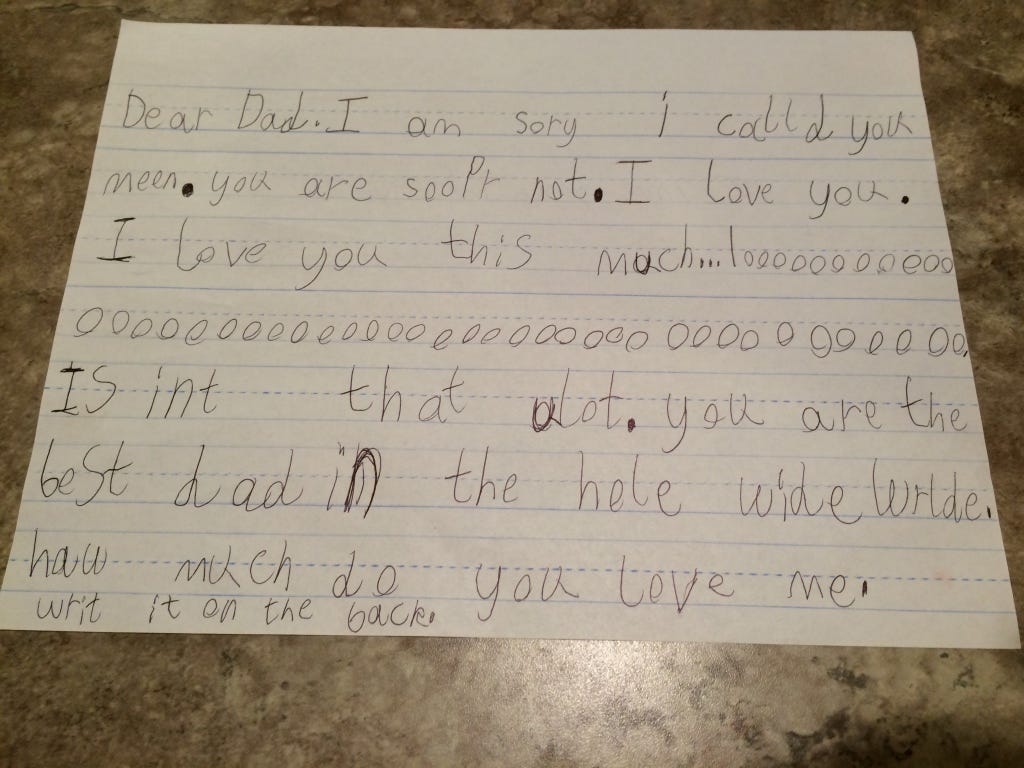 Dear Dad. I am sory i calld you
meen. you are soopr not. I love you.
I love you this much...1ooooooooeoo
OOOOOeOOOOOeOOOOeOOOOOOOOOOOOOOOOeOOOO.
IS int that alot. you are the
best dad in the hole wide wrlde.
haw much do you love me.
writ it on the back.